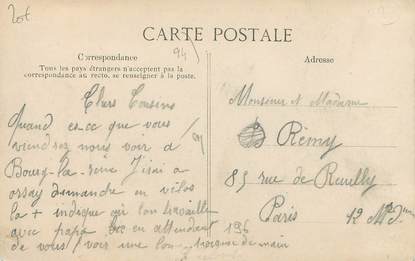 Lot
CARTE POSTALE
94
Correspondance
Tous les pays étrangers n'acceptent pas la
correspondance au recto, se renseigner à la poste.
Adresse
Chers Cousins
Quand es-ce que vous
viendrez nous voir à
Bourg-la-reine J'irai à
orsay dimanche en vélos
la + indique où l'on travaille
avec papa en attendant
de vous voir une bonne
poignée de main
196
Monsieur et Madame
Rémy
85 rue de Reuilly
Paris 12